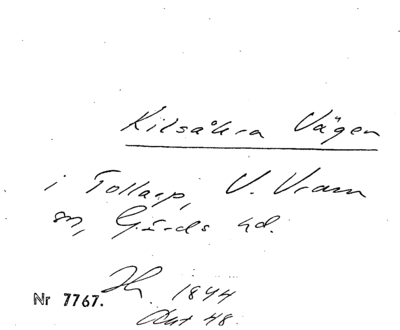 Kilsåkra Vägen
i Tollarp, V. Vram
sn, Gärds hd.
Nr 7767. 1844
Akt 48.